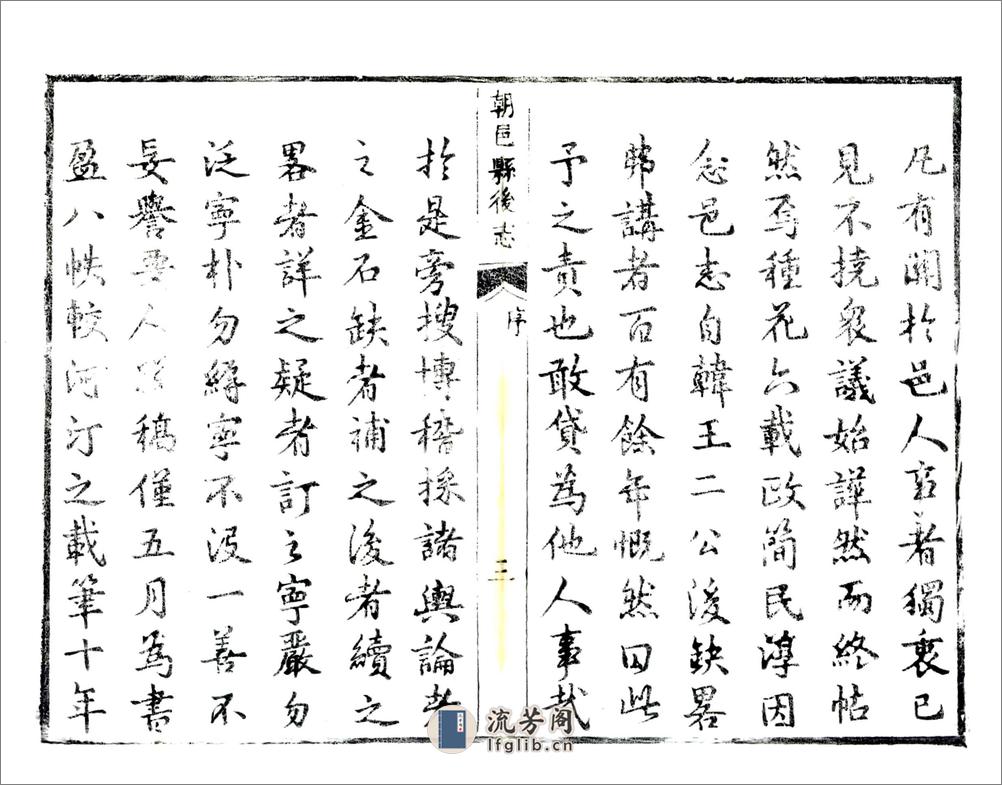 凡有關扵邑人者獨衷已
見不撓衆議始譁然而終帖
然焉種花六載政簡民淳因
念邑志自韓王二公後缺畧
弗講者百有餘年慨然曰此
予之責也敢貸為他人事哉
朝邑縣後志
序
三
扵是旁搜博稽採諸輿論考
之金石缺者補之後者續之
畧者詳之疑者訂之寧嚴勿
泛寧朴勿縟寧不沒一善不
妄譽人稿僅五月為書
盈八帙較河汀之載筆十年
流芳阁
lfglib.cn